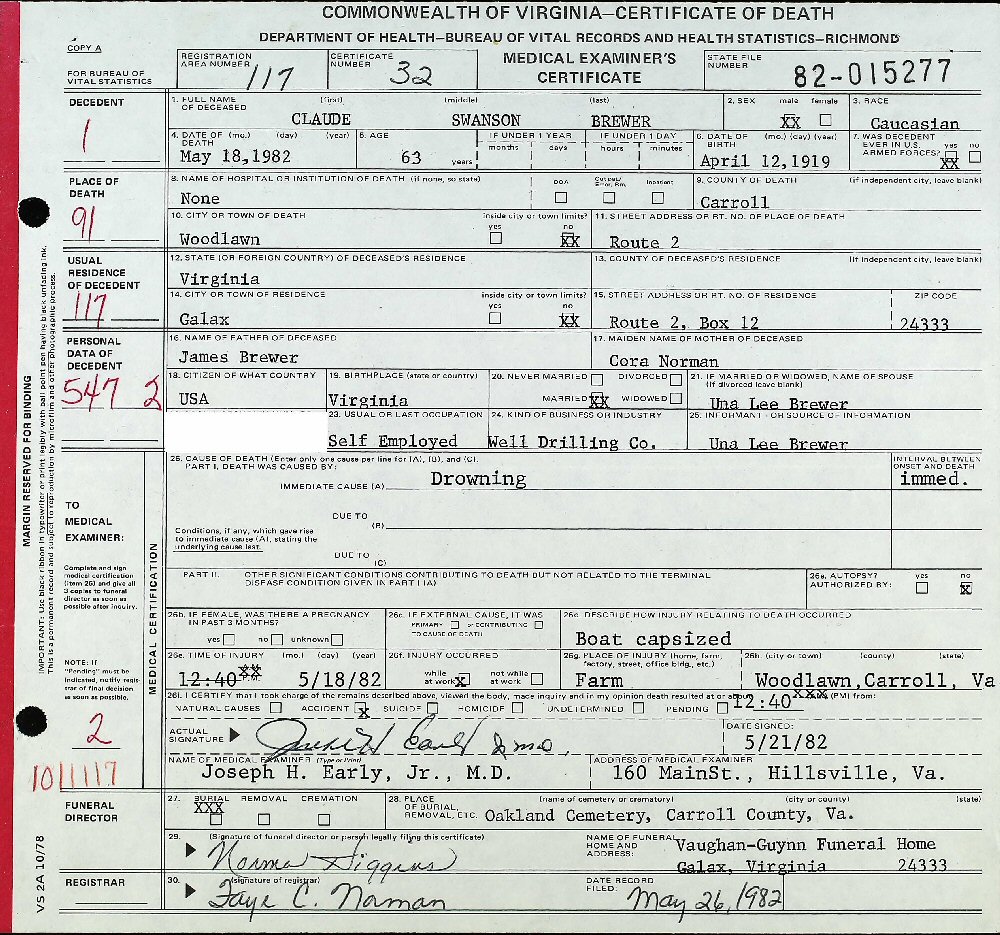 COMMONWEALTH OF VIRGINIA—CERTIFICATE OF DEATH
DEPARTMENT OF HEALTH—BUREAU OF VITAL RECORDS AND HEALTH STATISTICS—RICHMOND
COPY A
FOR BUREAU OF VITAL STATISTICS
REGISTRATION AREA NUMBER 117
CERTIFICATE NUMBER 32
MEDICAL EXAMINER'S CERTIFICATE
STATE FILE NUMBER 82-015277
DECEDENT
1
1. FULL NAME OF DECEASED (first) (middle) (last)
CLAUDE SWANSON BREWER
2. SEX male female
XX
3. RACE
Caucasian
4. DATE OF DEATH (mo.) (day) (year)
May 18,1982
5. AGE
63 years
IF UNDER 1 YEAR months days
IF UNDER 1 DAY hours minutes
6. DATE OF BIRTH (mo.) (day) (year)
April 12,1919
7. WAS DECEDENT EVER IN U.S. ARMED FORCES? yes no
XX
PLACE OF DEATH
91
8. NAME OF HOSPITAL OR INSTITUTION OF DEATH (if none, so state)
None
DOA Inpatient
9. COUNTY OF DEATH (if independent city, leave blank)
Carroll
10. CITY OR TOWN OF DEATH inside city or town limits? yes no
Woodlawn XX
11. STREET ADDRESS OR RT. NO. OF PLACE OF DEATH
Route 2
USUAL RESIDENCE OF DECEDENT
117
12. STATE (OR FOREIGN COUNTRY) OF DECEASED'S RESIDENCE
Virginia
13. COUNTY OF DECEASED'S RESIDENCE (if independent city, leave blank)
14. CITY OR TOWN OF RESIDENCE inside city or town limits? yes no
Galax XX
15. STREET ADDRESS OR RT. NO. OF RESIDENCE ZIP CODE
Route 2, Box 12 24333
PERSONAL DATA OF DECEDENT
547 2
16. NAME OF FATHER OF DECEASED
James Brewer
17. MAIDEN NAME OF MOTHER OF DECEASED
Cora Norman
18. CITIZEN OF WHAT COUNTRY
USA
19. BIRTHPLACE (state or country)
Virginia
20. NEVER MARRIED DIVORCED
MARRIED XX WIDOWED
21. IF MARRIED OR WIDOWED, NAME OF SPOUSE (If divorced leave blank)
Una Lee Brewer
23. USUAL OR LAST OCCUPATION
Self Employed
24. KIND OF BUSINESS OR INDUSTRY
Well Drilling Co.
25. INFORMANT OR SOURCE OF INFORMATION
Una Lee Brewer
MARGIN RESERVED FOR BINDING
IMPORTANT: Use black ribbon in typewriter or print legibly with ball point pen having black unfading ink.
This is a permanent record and subject to reproduction by microfilm and other photographic process.
TO MEDICAL EXAMINER:
Complete and sign medical certification (item 26) and give all 3 copies to funeral director as soon as possible after inquiry.
NOTE: If "Pending" must be indicated, notify registrar of final decision as soon as possible.
2
101117
MEDICAL CERTIFICATION
26. CAUSE OF DEATH (Enter only one cause per line for (A), (B), and (C).
PART I. DEATH WAS CAUSED BY:
IMMEDIATE CAUSE (A) Drowning
INTERVAL BETWEEN ONSET AND DEATH
immed.
DUE TO (B)
Conditions, if any, which gave rise to immediate cause (A), stating the underlying cause last.
DUE TO (C)
PART II. OTHER SIGNIFICANT CONDITIONS CONTRIBUTING TO DEATH BUT NOT RELATED TO THE TERMINAL DISEASE CONDITION GIVEN IN PART I (A)
26a. AUTOPSY? AUTHORIZED BY: yes no
X
26b. IF FEMALE, WAS THERE A PREGNANCY IN PAST 3 MONTHS?
yes no unknown
26c. IF EXTERNAL CAUSE, IT WAS
PRIMARY or CONTRIBUTING
TO CAUSE OF DEATH
DESCRIBE HOW INJURY RELATING TO DEATH OCCURRED
Boat capsized
26e. TIME OF INJURY (mo.) (day) (year)
12:40 5/18/82
26f. INJURY OCCURRED
while at work X not while at work
26g. PLACE OF INJURY (home, farm, factory, street, office bldg., etc.)
Farm
26h. (city or town) (county) (state)
Woodlawn,Carroll, Va
26i. I CERTIFY that I took charge of the remains described above, viewed the body, made inquiry and in my opinion death resulted at or about 12:40 XXX (PM) from:
NATURAL CAUSES ACCIDENT X SUICIDE HOMICIDE UNDETERMINED PENDING
ACTUAL SIGNATURE
DATE SIGNED:
5/21/82
NAME OF MEDICAL EXAMINER (Type or Print)
Joseph H. Early, Jr., M.D.
ADDRESS OF MEDICAL EXAMINER
160 MainSt., Hillsville, Va.
FUNERAL DIRECTOR
27. BURIAL REMOVAL CREMATION
XXX
28. PLACE OF BURIAL, REMOVAL, ETC. (name of cemetery or crematory) (city or county) (state)
Oakland Cemetery, Carroll County, Va.
29. (Signature of funeral director or person legally filing this certificate)
Norma Higgins
NAME OF FUNERAL HOME AND ADDRESS:
Vaughan-Guynn Funeral Home
Galax, Virginia 24333
REGISTRAR
30. (signature of registrar)
Faye C. Norman
DATE RECORD FILED:
May 26, 1982
VS 2A 10/78